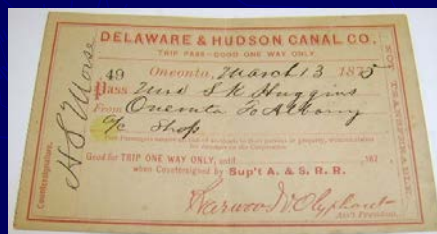 DELAWARE & HUDSON CANAL CO.
TRIP PASS - GOOD ONE WAY ONLY.
49 Oneonta, March 13 1875
Pass Mrs S K Huggins
From Oneonta To Albany
a/c Shop
Good for TRIP ONE WAY ONLY, until 187
when Countersigned by Sup't A. & S. R. R.
Ass't President.
Countersigned,
H S Morse
NOT TRANSFERABLE.